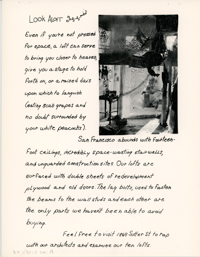 LOOK ALOFT
Even if you're not pressed
for space, a loft can serve
to bring you closer to heaven,
give you a stage to hold
forth on, or a raised dais
upon which to languish
(eating scab grapes and
no doubt surrounded by
your white peacocks).
San Francisco abounds with fourteen-
foot ceilings, incredibly space-wasting stairwells,
and unguarded construction sites. Our lofts are
surfaced with double sheets of redevelopment
plywood and old doors. The lag bolts, used to fasten
the beams to the wall studs and each other are
the only parts we haven't been able to avoid
buying.
Feel free to visit 1827 Sutter St. to rap
with our architects and examine our ten lofts.